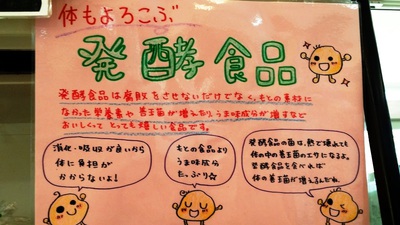 体もよろこぶ
発酵食品
発酵食品は腐敗をさせないだけでなく、もとの素材に
なかった栄養素や善玉菌が増えたり、うま味成分が増すなど
おいしくって とっても嬉しい食品です。
消化・吸収が良いから
体に負担が
かからないよ!
もとの食品より
うま味成分
たっぷり☆
発酵食品の菌は、熱で壊れても
体の中の善玉菌のエサになるよ。
発酵食品を食べれば
体の善玉菌が増えるんだね